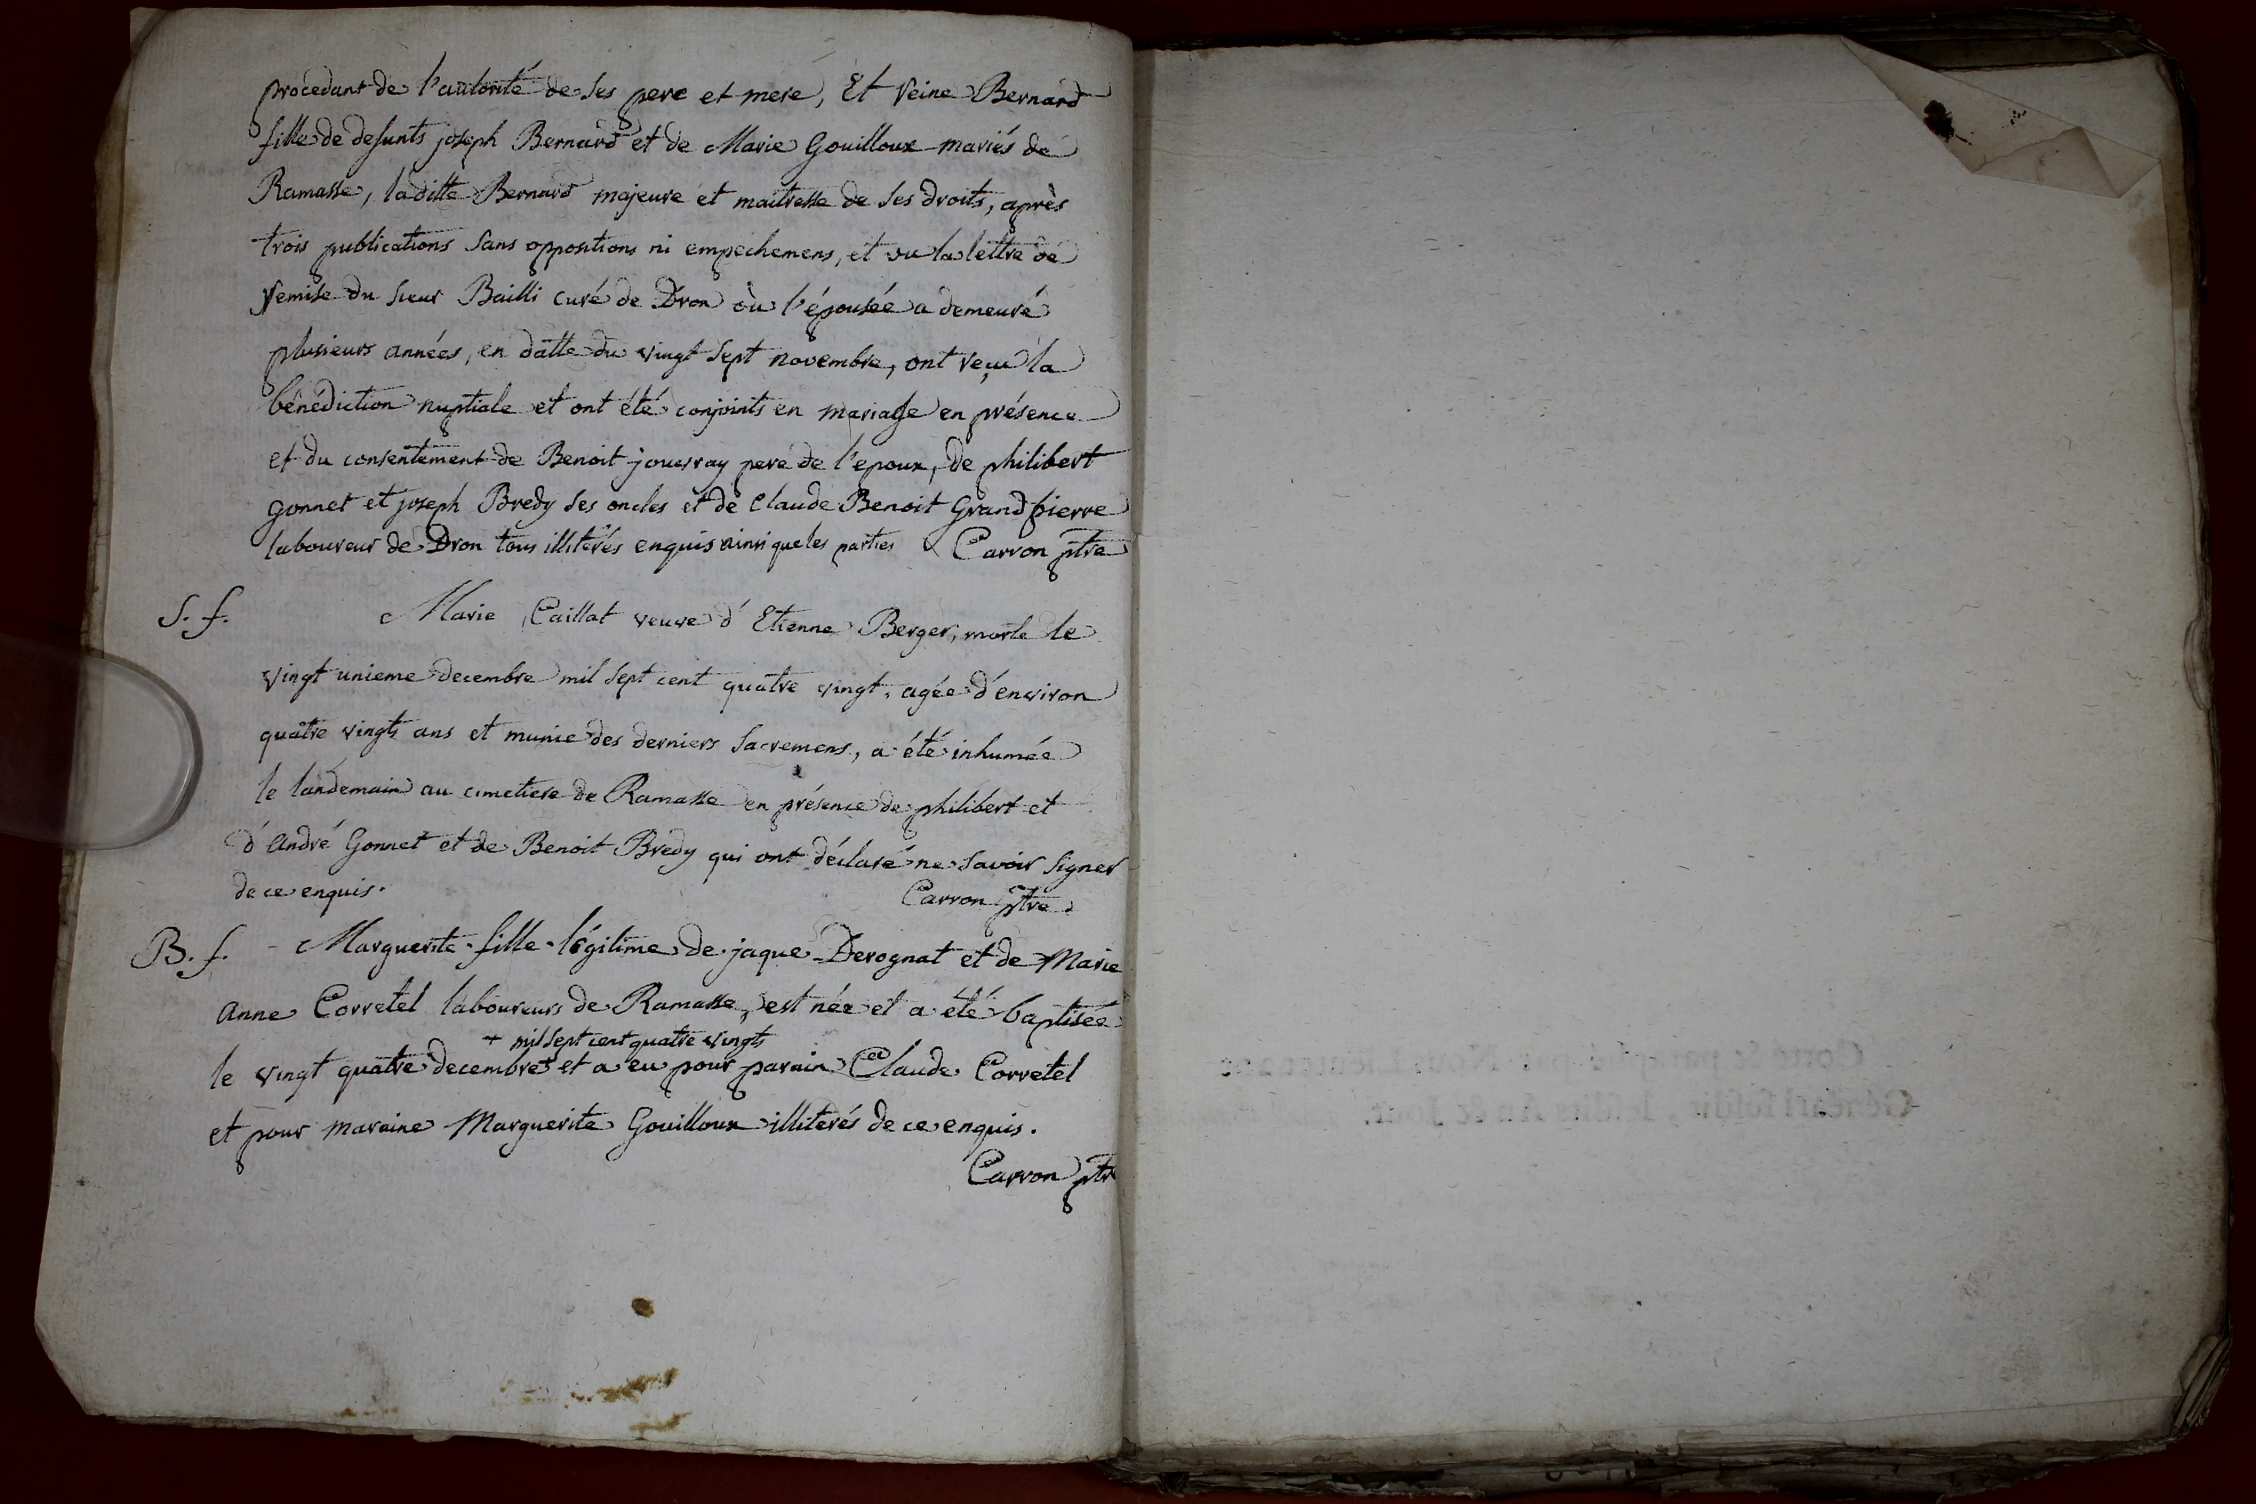 procedant de l'autorité de ses pere et mere, Et reine Bernard
fille de defunts joseph Bernard et de Marie Gouilloux mariés de
Ramasse, laditte Bernard majeure et maitresse de ses droits, après
trois publications sans oppositions ni empechemens, et vu la lettre de
remise du sieur Bailli curé de Dron où l'épousée a demeuré
plusieurs années, en datte du vingt sept novembre, ont reçu la
bénédiction nuptiale et ont été conjoints en mariage en présence
et du consentement de Benoit jouvray pere de l'epoux, de philibert
gonnet et joseph Bredy ses oncles et de Claude Benoit Grandpierre
laboureur de Dron tous illiterés enquis ainsi que les parties Carron ptre
S. f. Marie Caillat veuve d'Etienne Berger, morte le
vingt unieme decembre mil sept cent quatre vingt, agée d'environ
quatre vingts ans et munie des derniers sacremens, a été inhumée
le landemain au cimetiere de Ramasse en présence de philibert et
d'andré Gonnet et de Benoit Bredy qui ont déclaré ne savoir signer
de ce enquis. Carron ptre
B. f. Marguerite fille légitime de jaque Derognat et de Marie
anne Corretel laboureurs de Ramasse, est née et a été baptisée
+ mil sept cent quatre vingts
le vingt quatre decembre + et a eu pour parain Claude Corretel
et pour maraine Marguerite Gouilloux illiterés de ce enquis.
Carron ptr